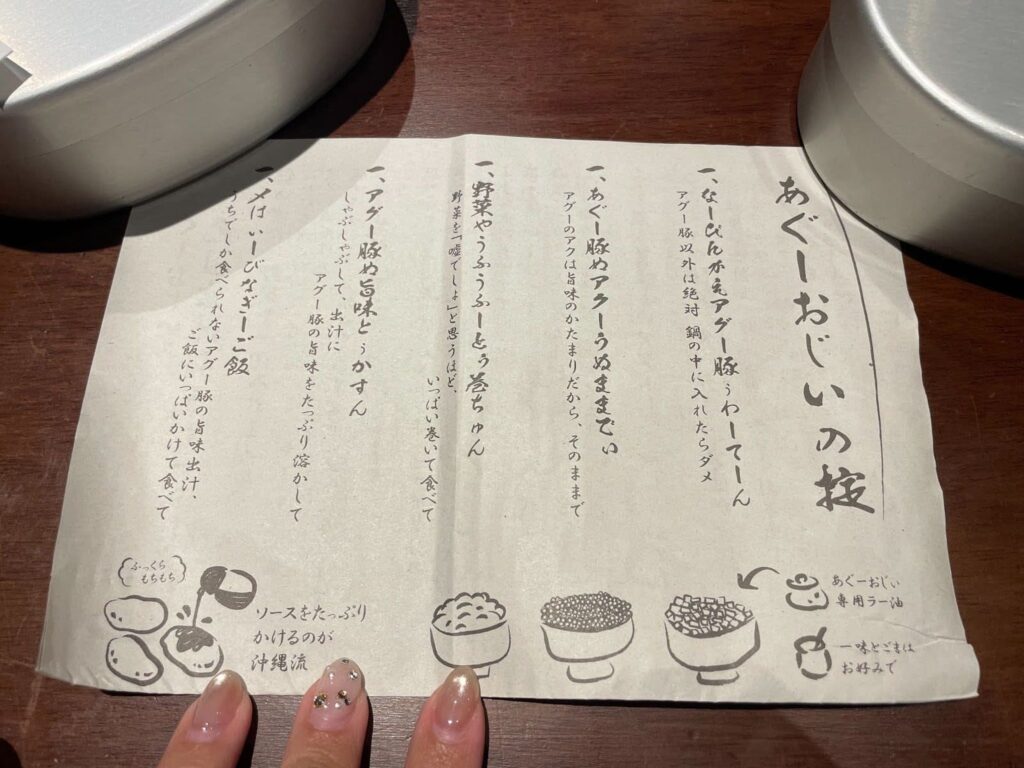 あぐーおじいの掟
一、なーびんかえアグー豚うわーてーん
アグー豚以外は絶対 鍋の中に入れたらダメ
一、あぐー豚ぬアクーうぬままでぃ
アグーのアクは旨味のかたまりだから、そのままで
一、野菜やうふうふーとぅ巻ちゅん
野菜を「嘘でしょ」と思うほど、
いっぱい巻いて食べて
一、アグー豚ぬ旨味とぅかすん
しゃぶしゃぶして、出汁に
アグー豚の旨味をたっぷり溶かして
〆はいーびなぎーご飯
うちでしか食べられないアグー豚の旨味出汁、
ご飯にいっぱいかけて食べて
あぐーおじぃ
専用ラー油
一味とごまは
お好みで
ソースをたっぷり
かけるのが
沖縄流
ふっくら
もちもち